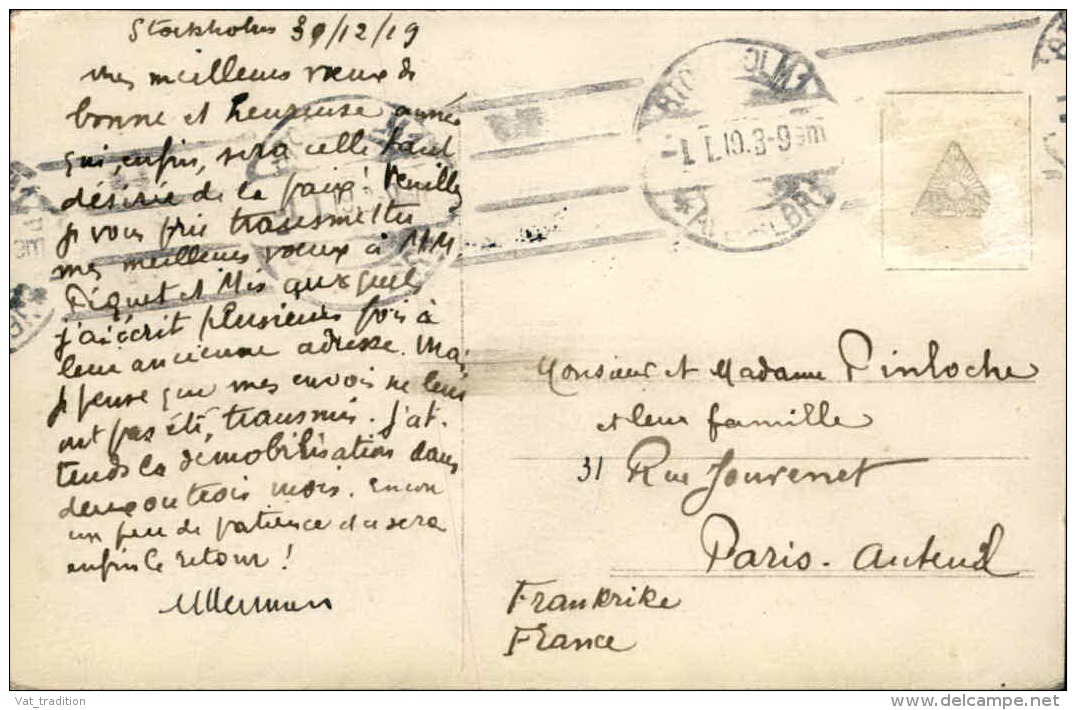 Stockholm 31/12/19
Mes meilleurs vœux de
bonne et heureuse année
qui, enfin, sera celle tant
désirée de la paix! Veuillez
je vous prie transmettre
mes meilleurs vœux à MM.
Piquet et Mis auxquels
j'ai écrit plusieurs fois à
leur ancienne adresse. Mais
je pense que mes envois ne leur
ont pas été, transmis. J'at-
tends la démobilisation dans
deux ou trois mois. Encore
un peu de patience et ce sera
enfin le retour!
-1.1.19.3-9 em
Monsieur et Madame Pinloche
et leur famille
31 Rue Jouvenet
Paris. Auteuil
Frankrike
France
Vat_tradition
delcampe.net